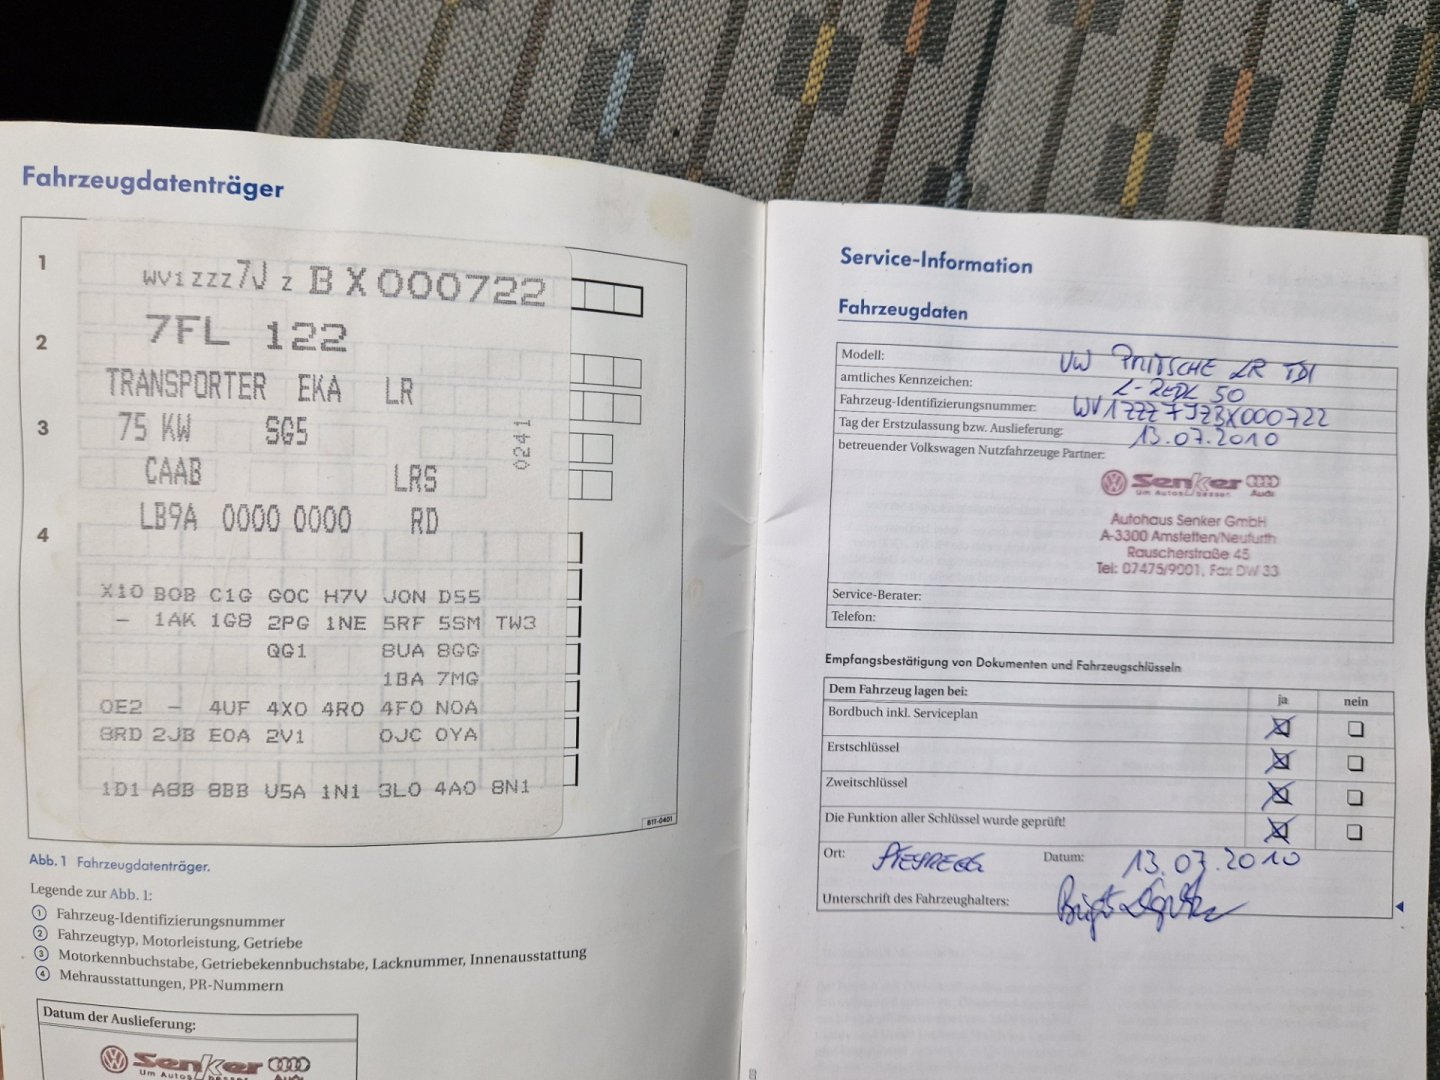 Fahrzeugdatenträger
1
WV1ZZZ7JZBX000722
2
7FL 122
TRANSPORTER EKA LR
3
75 KW SG5
0241
CAAB LRS
LB9A 0000 0000 RD
4
X10 B0B C1G G0C H7V J0N D55
- 1AK 1G8 2PG 1NE 5RF 5SM TW3
QG1 8UA 8GG
1BA 7MG
0E2 - 4UF 4X0 4R0 4F0 N0A
8RD 2JB E0A 2V1 0JC 0YA
1D1 A8B 8BB U5A 1N1 3L0 4A0 8N1
B1T-0401
Abb. 1 Fahrzeugdatenträger.
Legende zur Abb. 1:
① Fahrzeug-Identifizierungsnummer
② Fahrzeugtyp, Motorleistung, Getriebe
③ Motorkennbuchstabe, Getriebekennbuchstabe, Lacknummer, Innenausstattung
④ Mehrausstattungen, PR-Nummern
Datum der Auslieferung:
Senker
Um Autos besser Audi
Service-Information
Fahrzeugdaten
Modell: VW PRITSCHE LR TDI
amtliches Kennzeichen: L-REPL 50
Fahrzeug-Identifizierungsnummer: WV1ZZZ7JZBX000722
Tag der Erstzulassung bzw. Auslieferung: 13.07.2010
betreuender Volkswagen Nutzfahrzeuge Partner:
Senker
Um Autos besser Audi
Autohaus Senker GmbH
A-3300 Amstetten/Neufurth
Rauscherstraße 45
Tel: 07475/9001, Fax DW 33
Service-Berater:
Telefon:
Empfangsbestätigung von Dokumenten und Fahrzeugschlüsseln
Dem Fahrzeug lagen bei: ja nein
Bordbuch inkl. Serviceplan
Erstschlüssel
Zweitschlüssel
Die Funktion aller Schlüssel wurde geprüft!
Ort: Datum: 13.07.2010
Unterschrift des Fahrzeughalters: